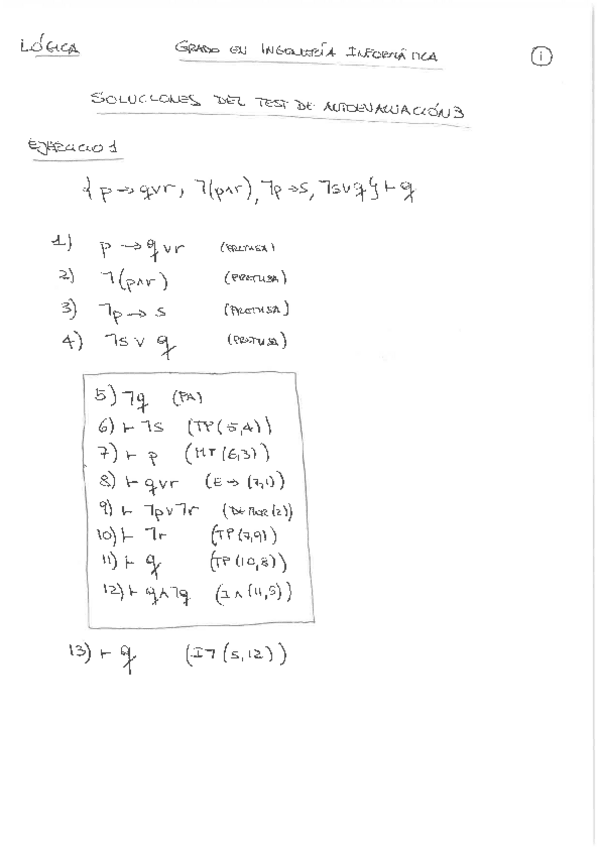 LÓGICA GRADO EN INGENIERÍA INFORMÁTICA 1
SOLUCIONES DEL TEST DE AUTOEVALUACIÓN 3
EJERCICIO 1
{ p → q∨r, ¬(p∧r), ¬p → s, ¬s∨q } ⊢ q
1) p → q∨r (PREMISA)
2) ¬(p∧r) (PREMISA)
3) ¬p → s (PREMISA)
4) ¬s ∨ q (PREMISA)
5) ¬q (PA)
6) ⊢ ¬s (TP(5,4))
7) ⊢ p (MT(6,3))
8) ⊢ q∨r (E→(7,1))
9) ⊢ ¬p∨¬r (DE MOR(2))
10) ⊢ ¬r (TP(7,9))
11) ⊢ q (TP(10,8))
12) ⊢ q∧¬q (I∧(11,5))
13) ⊢ q (I¬(5,12))